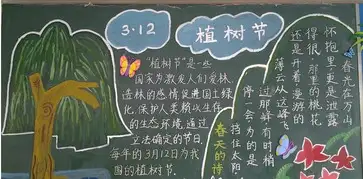 3·12
植树节
"植树节"是一些
国家为激发人们爱林、
造林的感情,促进国土绿
化,保护人类赖以生存
的生态环境,通过
立法确定的节日,
每年的3月12日为我
国的植树节.
春天的诗
春光在万山
怀抱里更是泄露
得很,那里的桃花
还是开着漫游的
薄云从这峰飞
过那峰有时稍
停一会为的是
挡住太阳